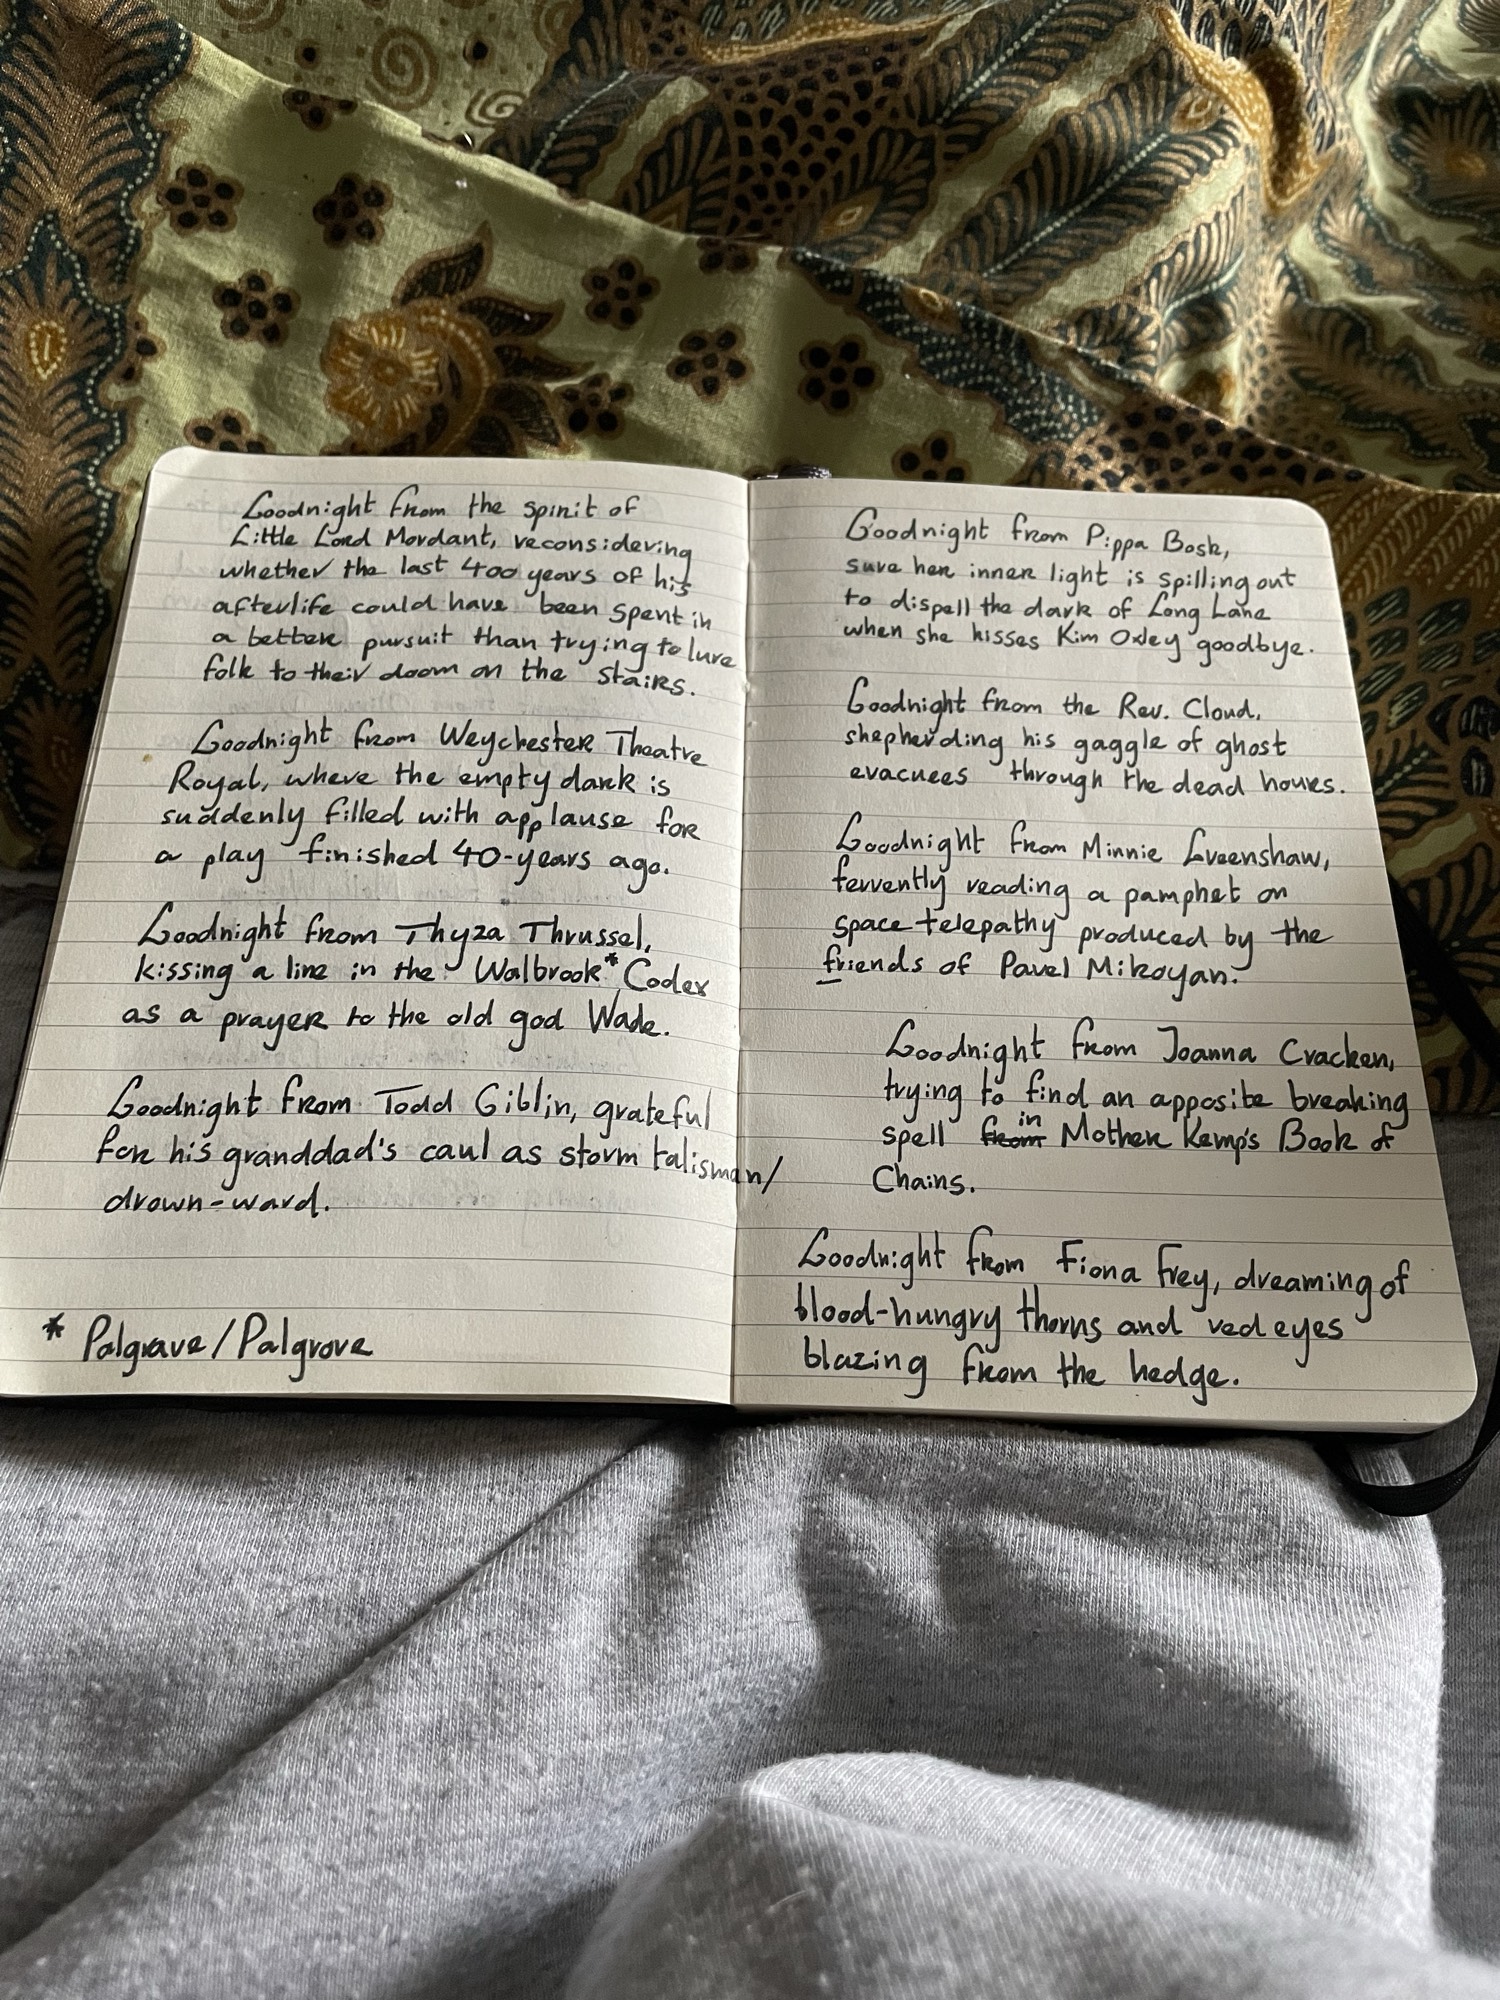 Goodnight from the spirit of
Little Lord Mordant, reconsidering
whether the last 400 years of his
afterlife could have been spent in
a better pursuit than trying to lure
folk to their doom on the stairs.
Goodnight from Weychester Theatre
Royal, where the empty dark is
suddenly filled with applause for
a play finished 40-years ago.
Goodnight from Thyza Thrussel,
kissing a line in the Walbrook* Codex
as a prayer to the old god Wade.
Goodnight from Todd Giblin, grateful
for his granddad's caul as storm talisman/
drown-ward.
* Palgrave/Palgrove
Goodnight from Pippa Bosk,
sure her inner light is spilling out
to dispell the dark of Long Lane
when she kisses Kim Oxley goodbye.
Goodnight from the Rev. Cloud,
shepherding his gaggle of ghost
evacuees through the dead hours.
Goodnight from Minnie Greenshaw,
fervently reading a pamphet on
space telepathy produced by the
friends of Pavel Mikoyan.
Goodnight from Joanna Cracken,
trying to find an apposite breaking
spell from in Mother Kemp's Book of
Chains.
Goodnight from Fiona Frey, dreaming of
blood-hungry thorns and red eyes
blazing from the hedge.